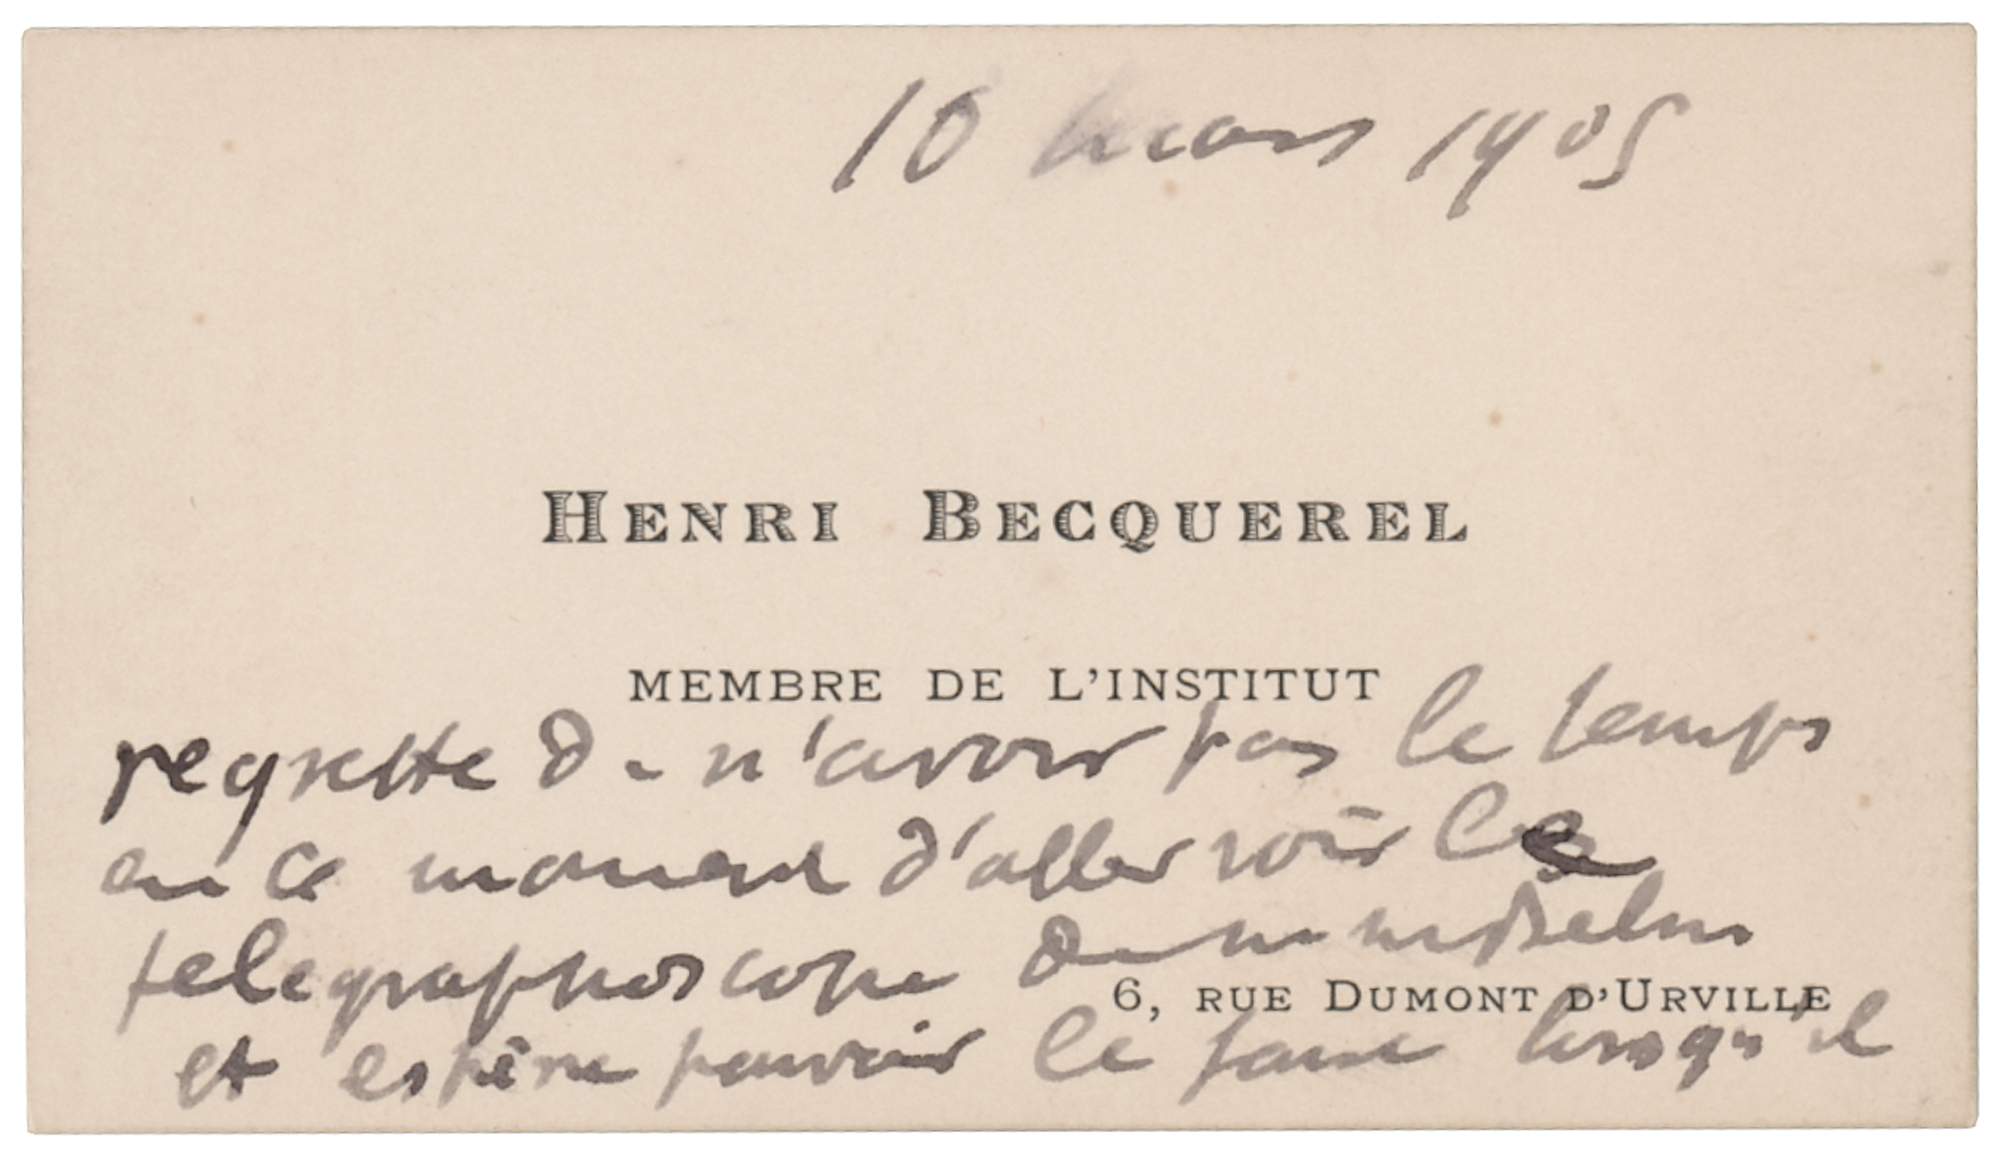 10 mars 1905
HENRI BECQUEREL
MEMBRE DE L'INSTITUT
regrette de n'avoir pas le temps
en ce moment d'aller voir le
telegraphoscope de
6, RUE DUMONT D'URVILLE
et espère pouvoir le faire lorsqu'il